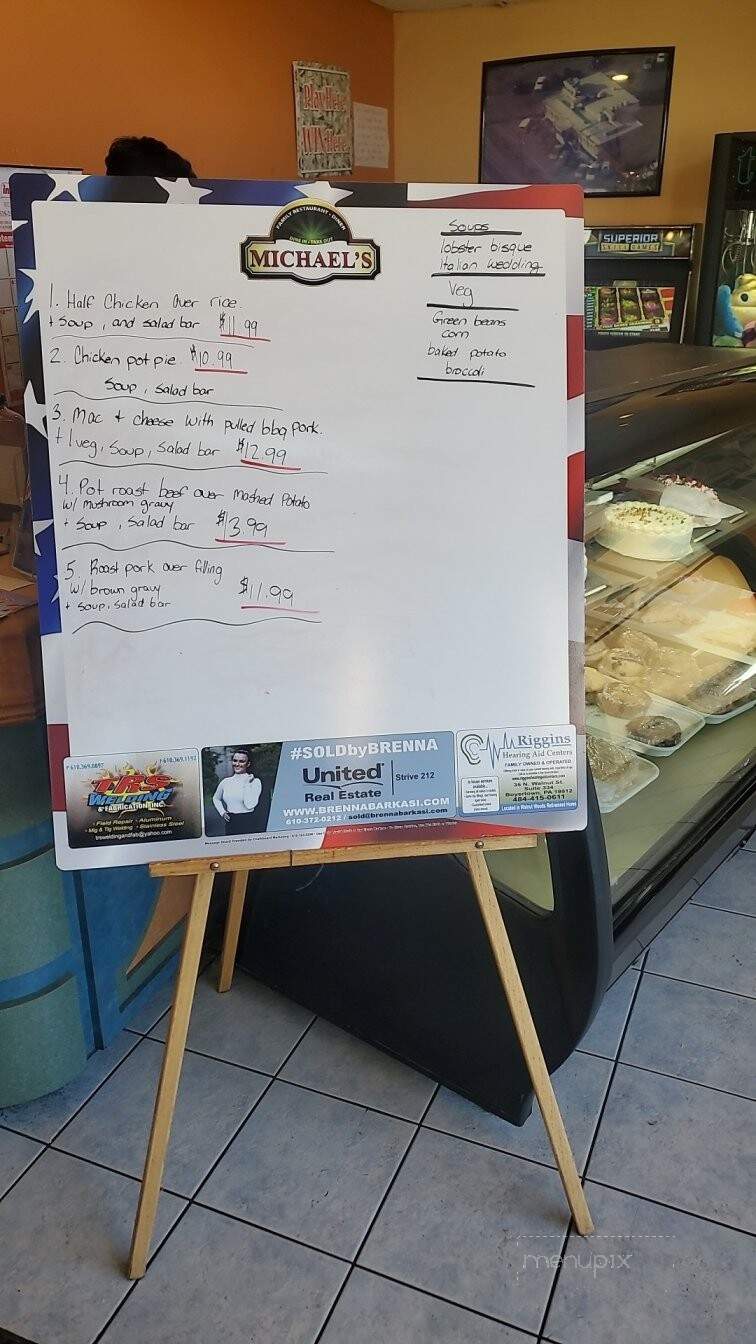 Play Here
Win Here
SUPERIOR
SKILL GAMES
FAMILY RESTAURANT • DINER
MICHAEL'S
1. Half Chicken Over rice.
+ Soup, and salad bar $11.99
2. Chicken pot pie $10.99
Soup, salad bar
3. Mac + cheese with pulled bbq pork.
+ 1 veg, Soup, Salad bar $12.99
4. Pot roast beef over mashed potato
w/ mushroom gravy
+ Soup, Salad bar $13.99
5. Roast pork over filling
w/ brown gravy $11.99
+ soup, salad bar
Soups
lobster bisque
Italian wedding
Veg
Green beans
corn
baked potato
broccoli
P 610.369.0897
F 610.369.1192
TRS
WELDING
& FABRICATION INC.
• Field Repair • Aluminum
• Mig & Tig Welding • Stainless Steel
trsweldingandfab@yahoo.com
#SOLDbyBRENNA
United
Real Estate
Strive 212
WWW.BRENNABARKASI.COM
610-372-0212 / sold@brennabarkasi.com
Riggins
Hearing Aid Centers
FAMILY OWNED & OPERATED
36 N. Walnut St.
Suite 334
Boyertown, PA 19512
484-415-0611
Located in Walnut Woods Retirement Home
menupix